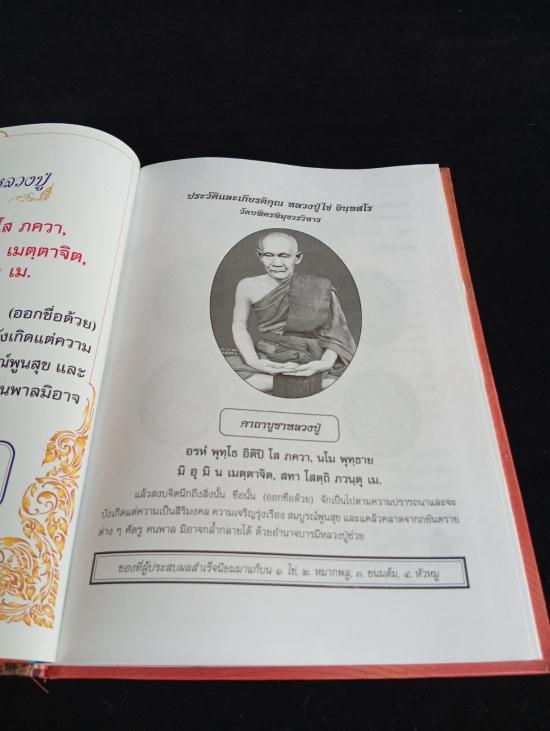 หลวงปู่
โส ภควา,
เมตฺตาจิต,
เม.
(ออกชื่อด้วย)
ังเกิดแต่ความ
ณ์พูนสุข และ
นพาลมิอาจ
ประวัติและเกียรติคุณ หลวงปู่ไข่ อินฺทสโร
วัดบพิตรพิมุขวรวิหาร
คาถาบูชาหลวงปู่
อรหํ พุทฺโธ อิติปิ โส ภควา, นโม พุทฺธาย
มิ อุ มิ น เมตฺตาจิต, สทา โสตฺถิ ภวนฺตุ เม.
แล้วสงบจิตนึกถึงสิ่งนั้น ชื่อนั้น (ออกชื่อด้วย) จักเป็นไปตามความปรารถนาและจะ
บังเกิดแต่ความเป็นสิริมงคล ความเจริญรุ่งเรือง สมบูรณ์พูนสุข และแคล้วคลาดจากภยันตราย
ต่าง ๆ ศัตรู คนพาล มิอาจกล้ำกลายได้ ด้วยอำนาจบารมีหลวงปู่ช่วย
ของที่ผู้ประสบผลสำเร็จนิยมมาแก้บน ๑. ไข่, ๒. หมากพลู, ๓. ขนมต้ม, ๔. หัวหมู